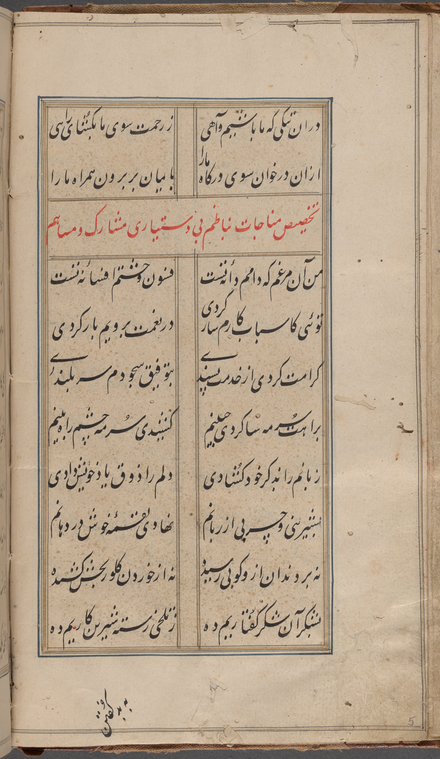 دران تنگی که ما باشیم و آهی ز رحمت سوی ما بگشای راهی
ازان در خوان سوی درگاه ما را با میان بر برون همراه ما را
تخصیص مناجات بناظم بی دستیاری مشارک و مساهم
من آن مرغم که دامم دانهٔ تست فسون وحشتم افسانهٔ تست
توئی کاسباب کارم ساز کردی در نعمت برویم باز کردی
کرامت کردی از خدمت پسندی بتوفیق سجودم سر بلندی
براهت سرمه سا کردی جبینم کشیدی سرمه چشم راه بینم
زبانم را بذکر خود کشادی دلم را ذوق یاد خویش دادی
بشیرینی و چربی از زبانم نهادی لقمهٔ خوش در دهانم
نه بر دندان ازو کوبی رسیده نه از خوردن گلو رنجش کشیده
بشکر آن شکر گفتاریم ده ز تلخی رسته شیرین کاریم ده
5